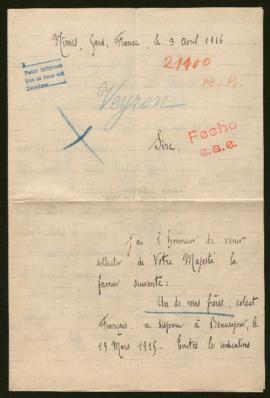 Nîmes, Gard, France, le 3 avril 1916
21400
M. R.
A
Pedir informes
Que se hace así
Devolver
Veyron
Fecho
e.a.e.
Sire,
J'ai l'honneur de venir
solliciter de Votre Majesté la
faveur suivante :
Un de mes frères, soldat
Français, a disparu à Beauséjour, le
19 Mars 1915. Toutes les indications